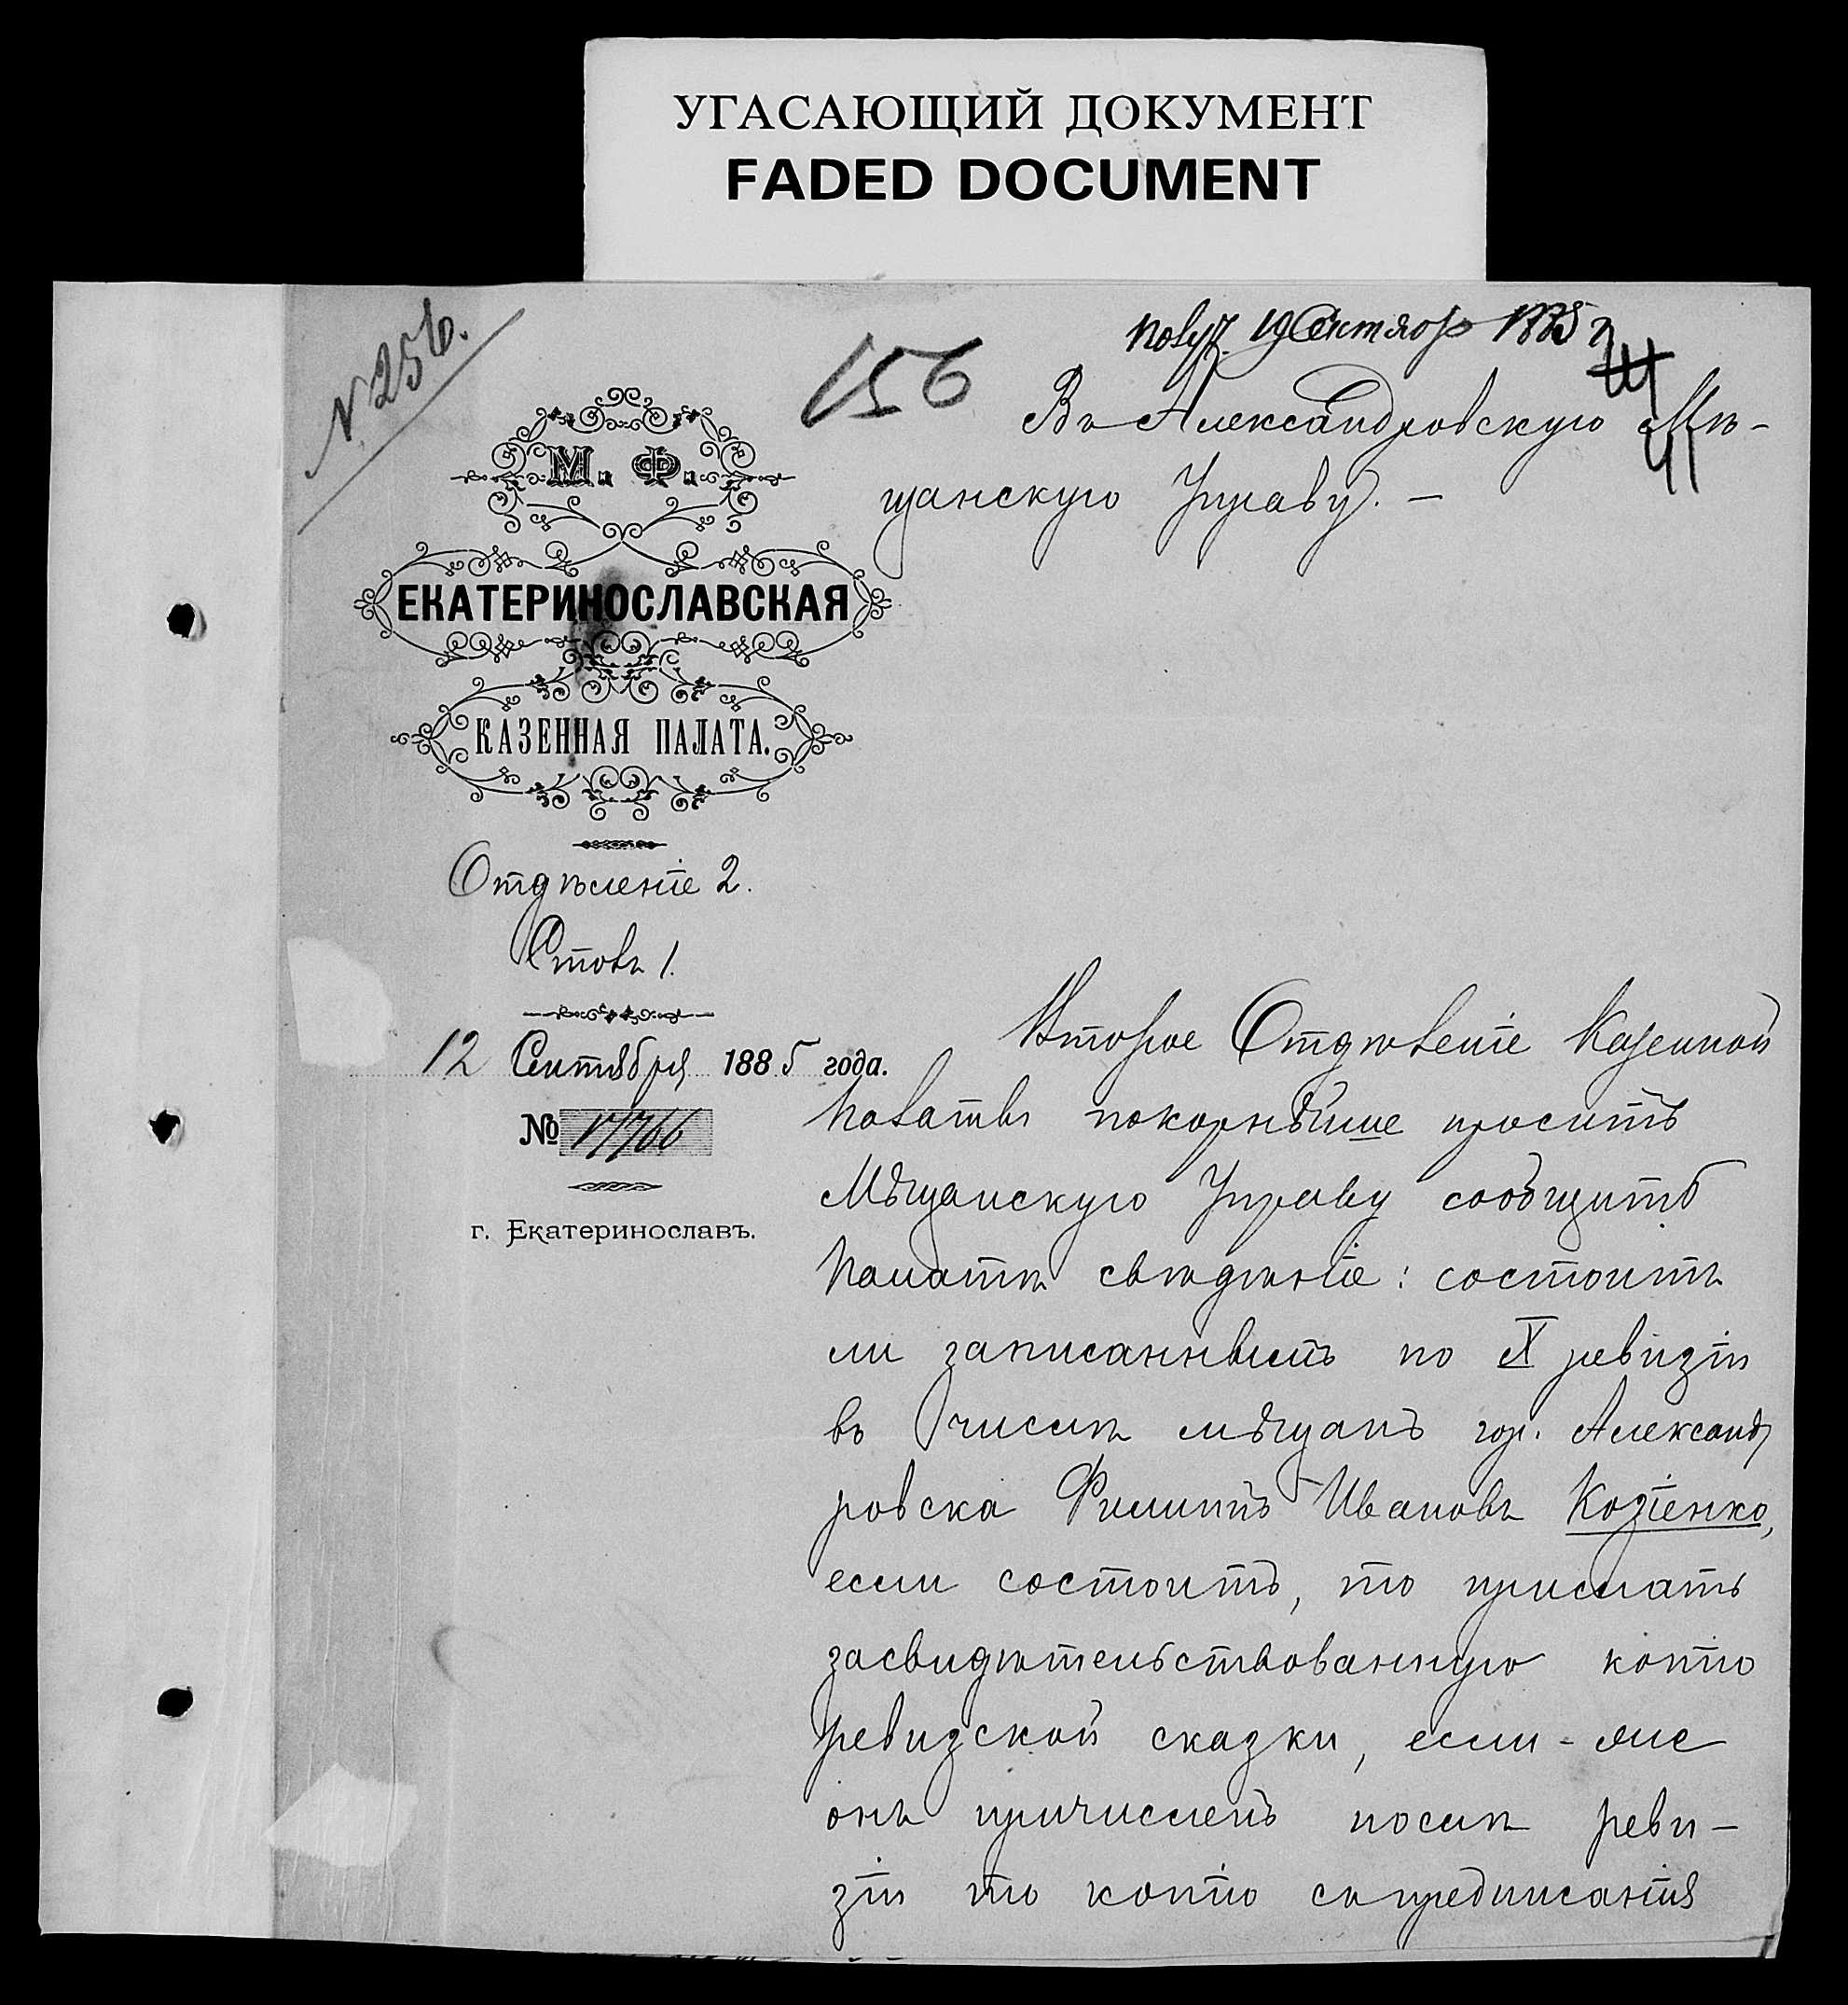 УГАСАЮЩИЙ ДОКУМЕНТ
FADED DOCUMENT
№ 256.
156
Получ. 19 Сентября 1885 г
Въ Александровскую Мѣ-
щанскую Управу. —
М. Ф.
ЕКАТЕРИНОСЛАВСКАЯ
КАЗЕННАЯ ПАЛАТА.
Отдѣленіе 2.
Столъ 1.
12 Сентября 1885 года.
№ 17766
г. Екатеринославъ.
Второе Отдѣленіе Казенной
Палаты покорнѣйше проситъ
Мѣщанскую Управу сообщить
Палатѣ свѣдѣніе: состоитъ
ли записаннымъ по X ревизіи
въ числѣ мѣщанъ гор. Александ
ровска Филиппъ Ивановъ Козіенко,
если состоитъ, то прислать
засвидѣтельствованную копію
ревизской сказки, если-же
онъ причисленъ послѣ реви-
зіи то копію съ предписанія